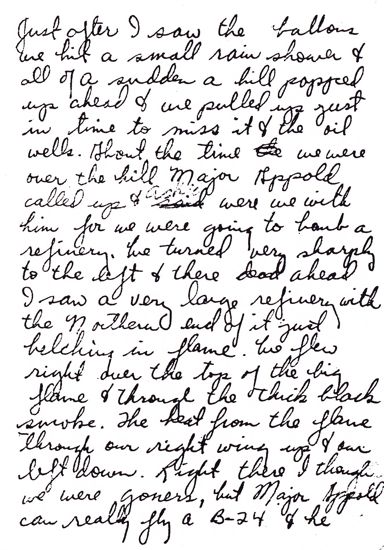 Just after I saw the ballons
we hit a small rain shower &
all of a sudden a hill popped
up ahead & we pulled up just
in time to miss it & the oil
wells. About the time we were
over the hill Major Appold
called up & asked were we with
him for we were going to bomb a
refinery. We turned very sharply
to the left & there dead ahead
I saw a very large refinery with
the Northern end of it just
belching in flame. We flew
right over the top of the big
flame & through the thick black
smoke. The heat from the flame
through our right wing up & our
left down. Right there I thought
we were goners, but Major Appold
can really fly a B-24 & he